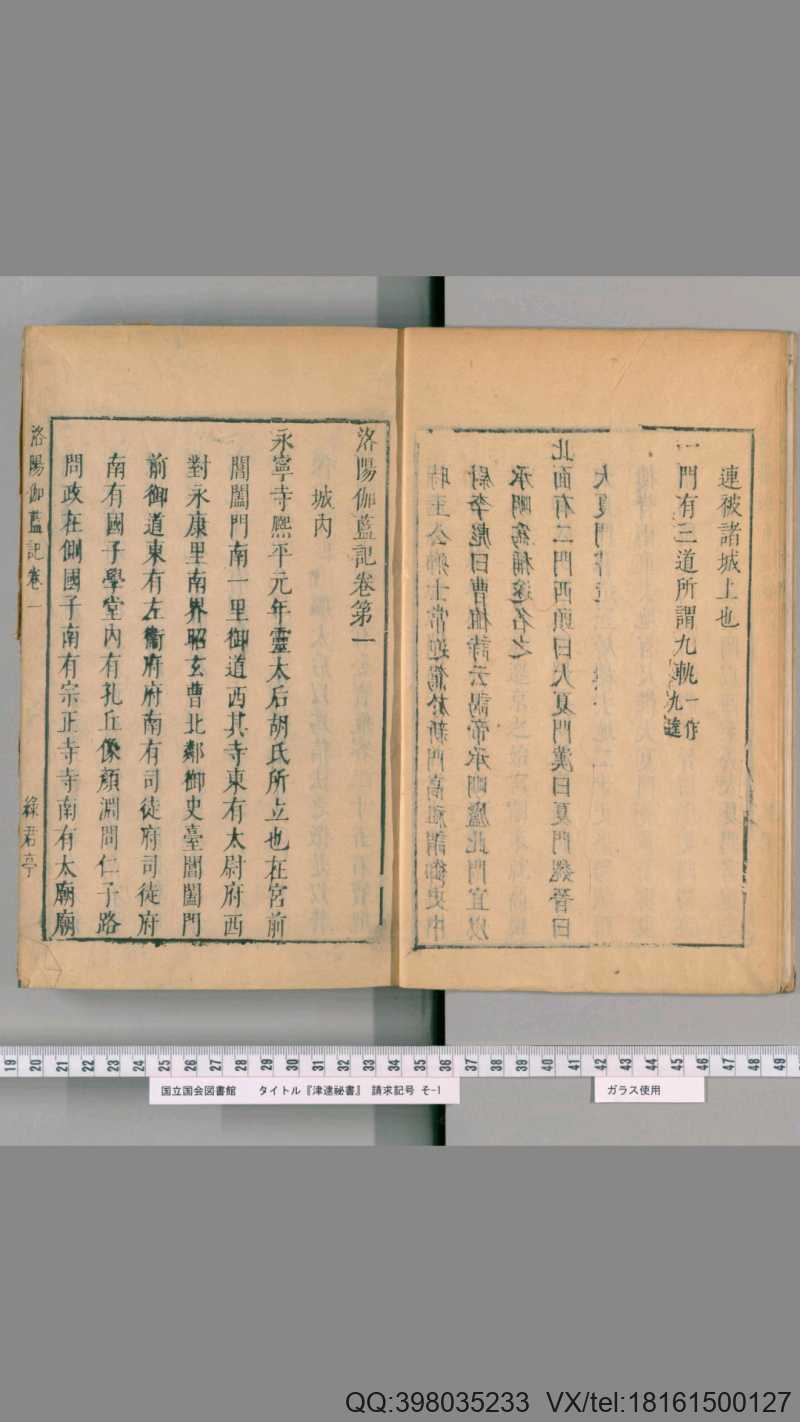 連被諸城上也
一門有三道所謂九軌一作九逵
洛陽伽藍記卷第一
城內
永寧寺熈平元年靈太后胡氏所立也在宮前
閶闔門南一里御道西其寺東有太尉府西
對永康里南界昭玄曹北鄰御史臺閶闔門
前御道東有左衛府府南有司徒府司徒府
南有國子學堂內有孔丘像顔淵問仁子路
問政在側國子南有宗正寺寺南有太廟廟
洛陽伽藍記卷一
綠君亭
19 20 21 22 23 24 25 26 27 28 29 30 31 32 33 34 35 36 37 38 39 40 41 42 43 44 45 46 47 48 49
国立国会図書館 タイトル『津逮秘書』 請求記号 そ-1
ガラス使用
QQ:398035233 VX/tel:18161500127